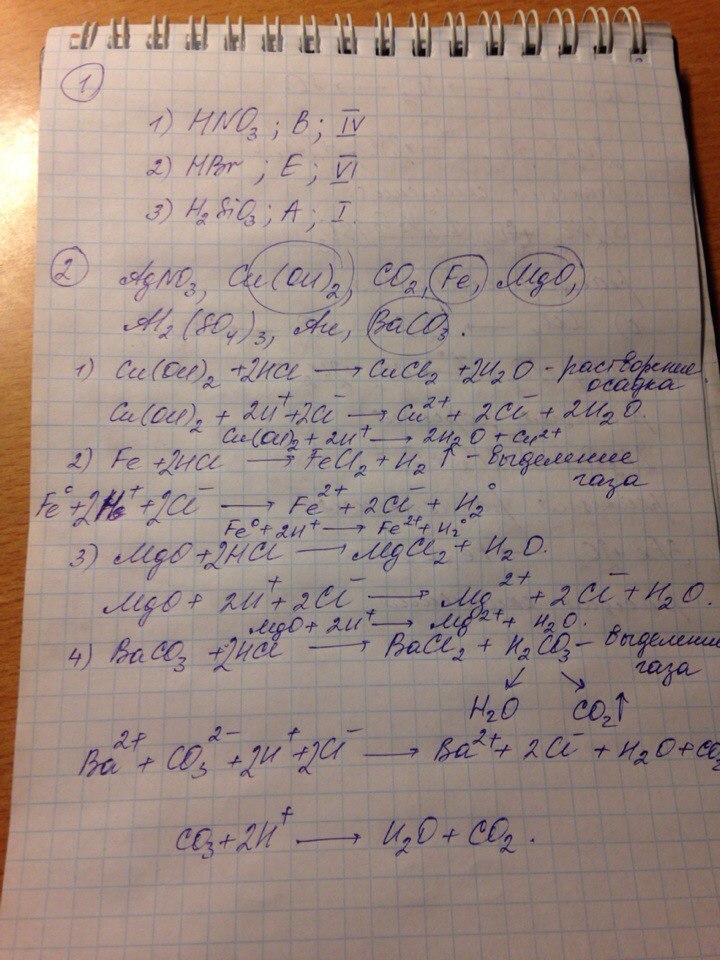 1
1) HNO₃ ; B ; IV
2) HBr ; E ; VI
3) H₂SiO₃ ; A ; I
2 AgNO₃, Cu(OH)₂, CO₂, Fe, MgO,
Al₂(SO₄)₃, Au, BaCO₃.
1) Cu(OH)₂ + 2HCl → CuCl₂ + 2H₂O - растворение
осадка
Cu(OH)₂ + 2H⁺ + 2Cl⁻ → Cu²⁺ + 2Cl⁻ + 2H₂O.
Cu(OH)₂ + 2H⁺ → 2H₂O + Cu²⁺
2) Fe + 2HCl → FeCl₂ + H₂↑ - выделение
газа
Fe⁰ + 2H⁺ + 2Cl⁻ → Fe²⁺ + 2Cl⁻ + H₂⁰
Fe⁰ + 2H⁺ → Fe²⁺ + H₂⁰
3) MgO + 2HCl → MgCl₂ + H₂O.
MgO + 2H⁺ + 2Cl⁻ → Mg²⁺ + 2Cl⁻ + H₂O.
MgO + 2H⁺ → Mg²⁺ + H₂O.
4) BaCO₃ + 2HCl → BaCl₂ + H₂CO₃ - выделение
газа
H₂O CO₂↑
Ba²⁺ + CO₃²⁻ + 2H⁺ + 2Cl⁻ → Ba²⁺ + 2Cl⁻ + H₂O + CO₂
CO₃ + 2H⁺ → H₂O + CO₂.